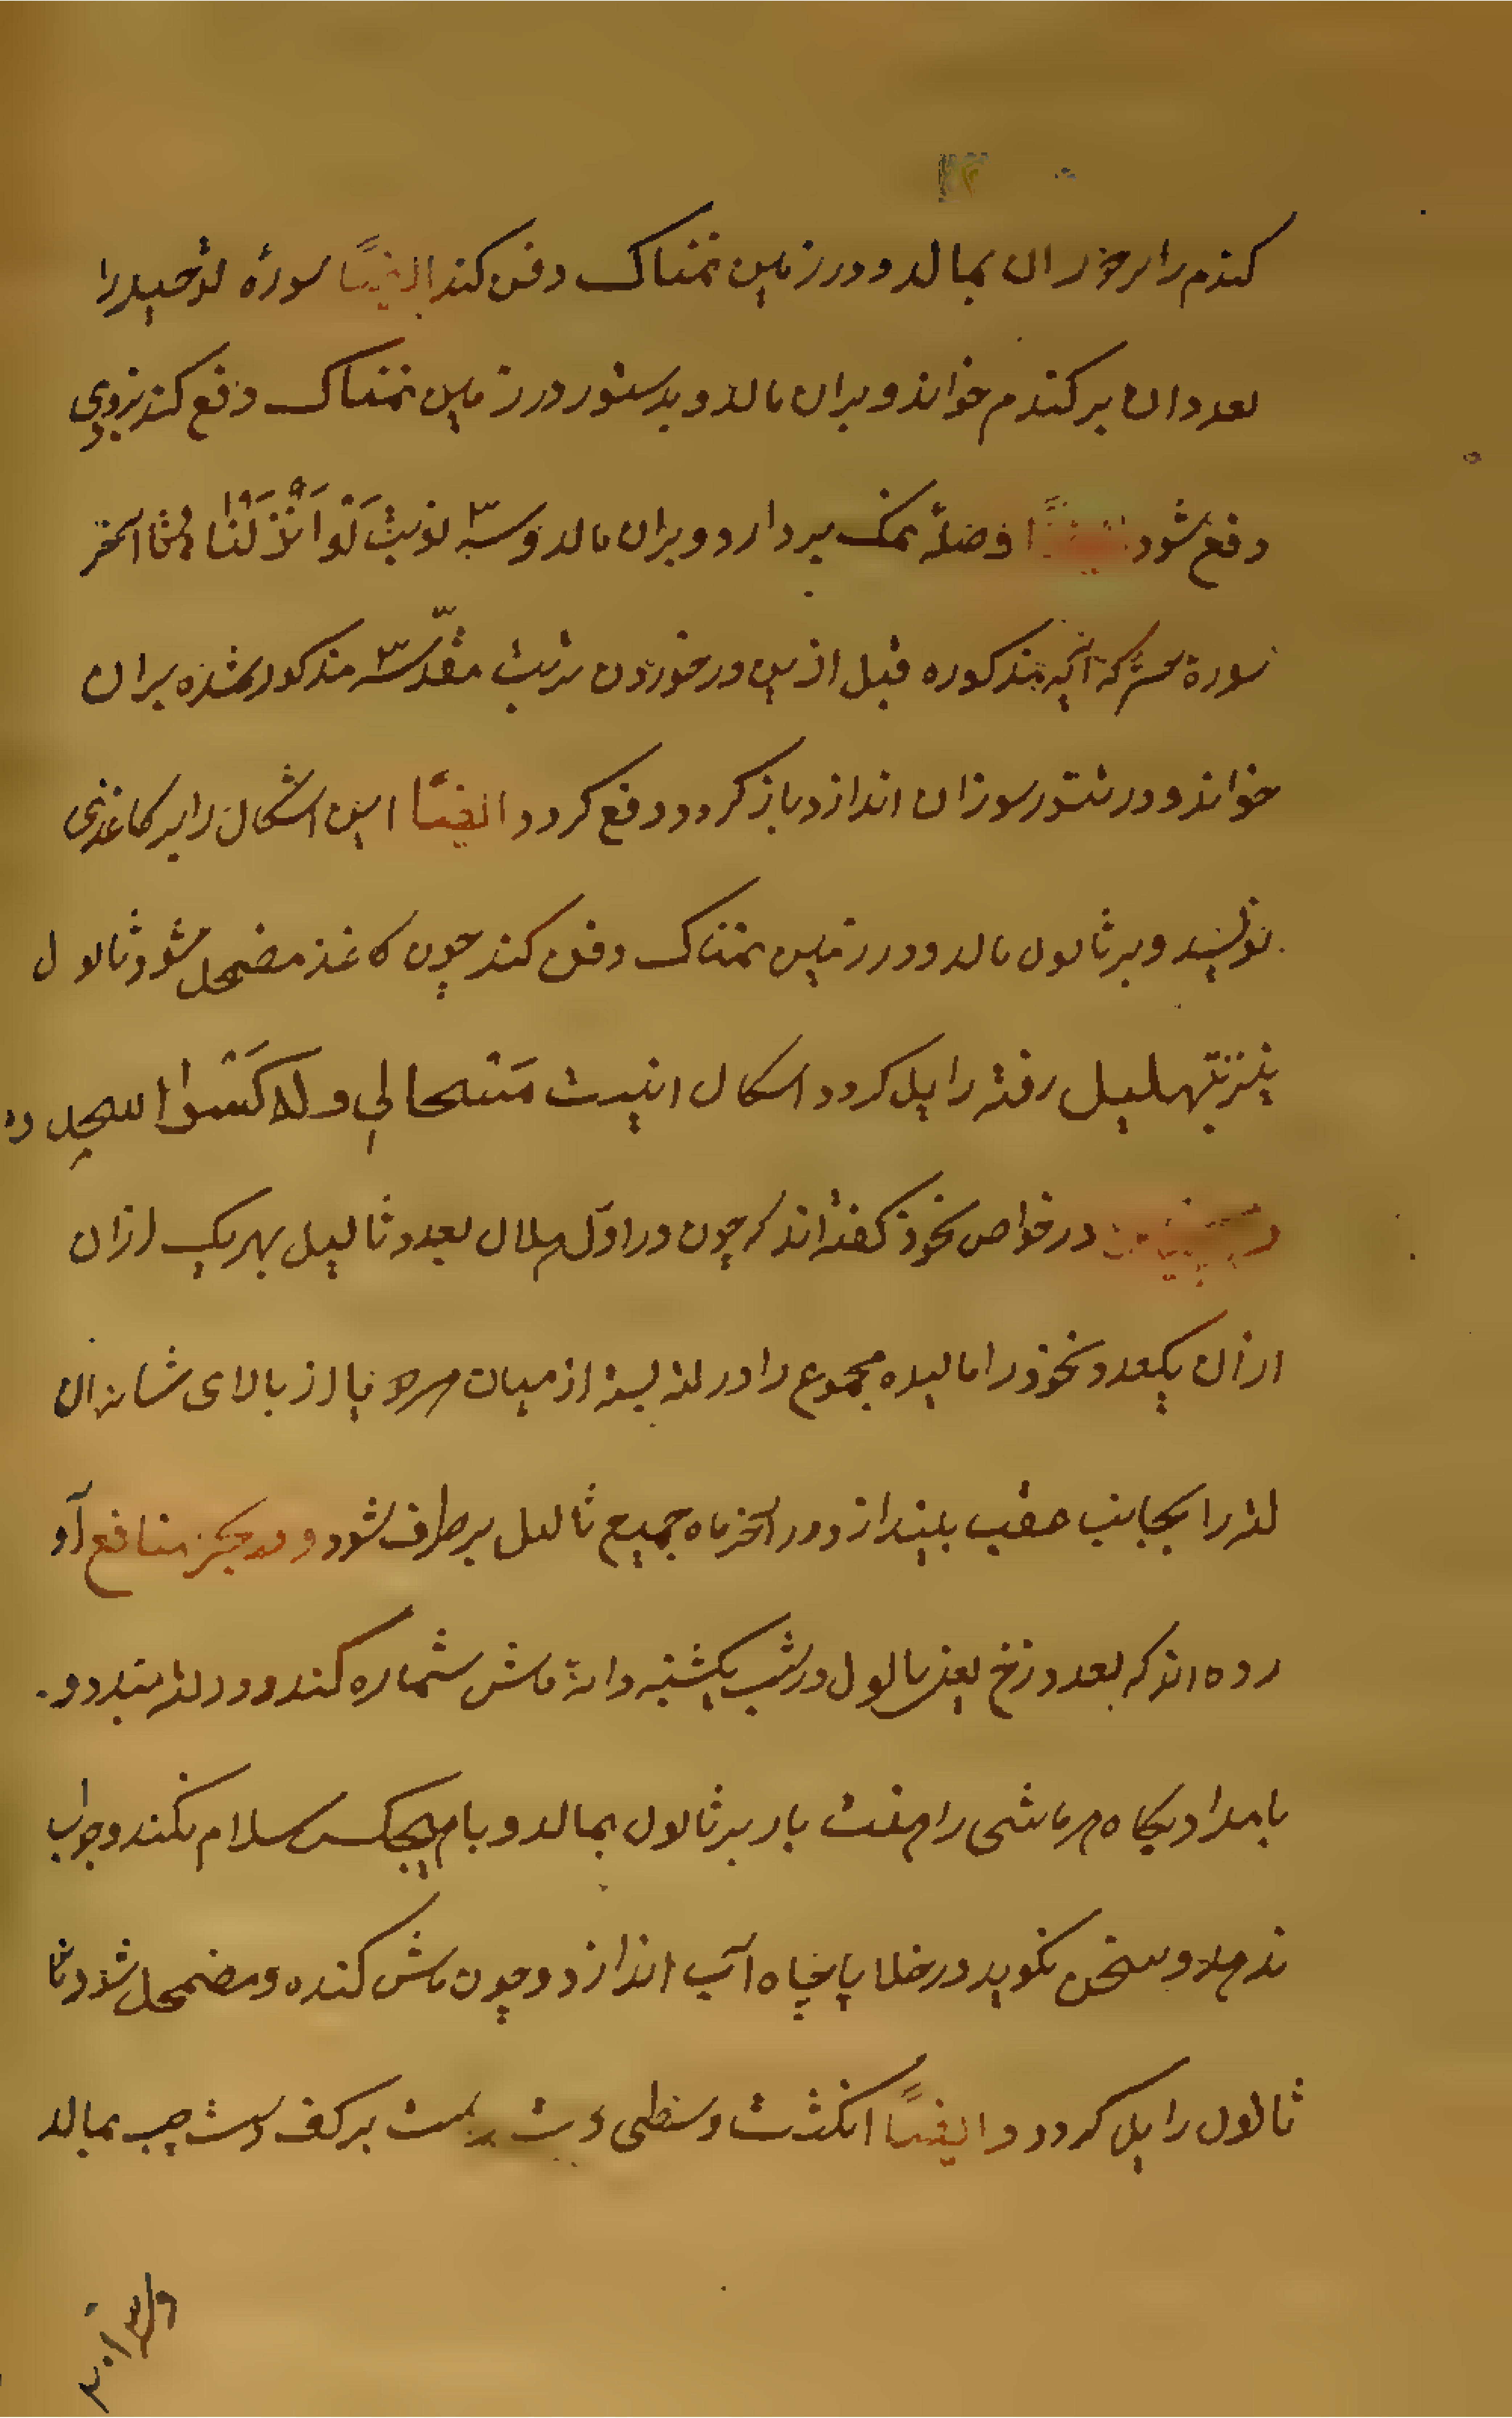 کندم را بر خوران بمالد و در زمین نمناک دفن کند ایضاً سورهٔ توحید را
بعدد ان بر کندم خواند و بران مالد و بدستور در زمین نمناک دفع کند بزودی
دفع شود ایضاً فضلهٔ نمک بردارد و بران مالد و سه نوبت لَوْ اَنْزَلْنَا تا آخر
سورهٔ حشر که آیه مذکوره قبل ازین در خوردن تربت مقدّسه مذکور شده بران
خواند و در تنور سوزان اندازد باز کردد و دفع کردد ایضاً این اشکال را بر کاغذی
نویسد و بر ثالول مالد و در زمین نمناک دفن کند چون کاغذ مضمحل شود ثالول
نیز بتهلیل رفته زایل کردد اشکال اینست
در خواص نخود کفته‌اند که چون در اوّل هلال بعدد ثالیل بهر یک ازان
ازان یکعدد نخود را مالیده مجموع را در لته بسته از میان هر دو پا از بالای شانه ان
لته را بجانب عقب بیندازد در آخر ماه جمیع ثالیل برطرف شود و در دیکر منافع آو
رده اند که بعدد زخ یعنی ثالول در شب یکشنبه دانهٔ ماش شماره کند و در لته بندد و
بامداد پکاه هر ماشی را هفت بار بر ثالول بمالد و با هیچکس سلام نکند و جواب
ندهد و سخن نکوید در خلا یا بچاه آب اندازد و چون ماش کنده و مضمحل شود ثا
ثالول زایل کردد و ایضاً انکشت وسطی دست راست بر کف دست چپ بمالد